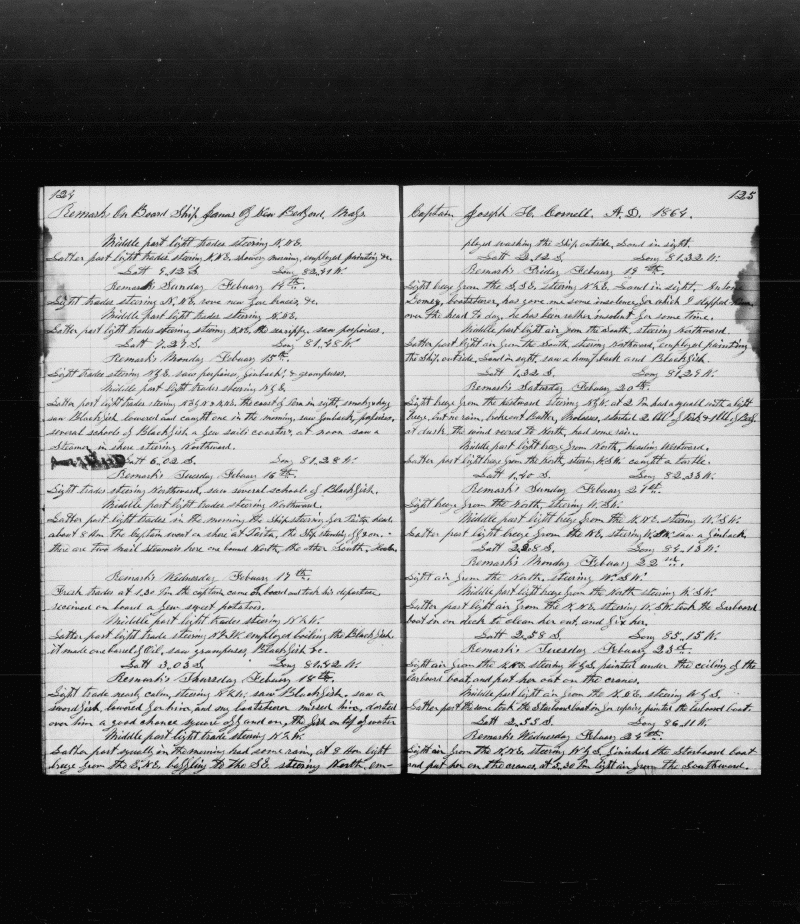 124
Remarks On Board Ship Janus Of New Bedford. Mass
Middle part light trades steering N.N.E.
Latter part light trades steering N.N.E. slower morning, employed painting &c.
Latt 9.12 S. Long 82.29 W.
Remarks Sunday Febuary 14th.
Light trades steering N.N.E. rove new fore braces, &c.
Middle part light trades steering N.N.E.
Latter part light trades steering, steering N.N.E. saw porpoises.
Latt 7.27 S. Long 81.48 W.
Remarks Monday Febuary 15th.
Light trades steering N by E. saw porpoises, finbacks, & grampuses.
Middle part light trades steering N by E.
Latter part light trades steering N by E & N.N.E. the coast of Peru in sight, smoky & hazy
saw Blackfish lowered and caught one in the morning, saw finbacks, porpoises,
several schools of Blackfish a few sails coasters, at noon saw a
Steamer in shore steering Northward.
Latt 6.02 S. Long 81.28 W.
Remarks Tuesday Febuary 16th.
Light trades steering Northward, saw several schools of Blackfish.
Middle part light trades steering Northward.
Latter part light trades in the morning the Ship steering for Paita head.
about 8 Am. the Captain went on shore at Paita, the Ship standing off & on.
there are two Mail Steamers here one bound North, the other South.
Remarks Wednesday Febuary 17th.
Fresh trades at 1.30 Pm the captain came on board and took his departure
received on board a few sweet potatoes.
Middle part light trades steering N.N.W.
Latter part light trade steering employed boiling the Blackfish
it made one barrel of Oil, saw grampuses, Blackfish &c.
Latt 3.03 S. Long 81.42 W.
Remarks Thursday Febuary 18th.
Light trade nearly calm, steering saw Blackfish, saw a
sword fish, lowered for him, and my boatsteerer missed him, darted
over him a good chance square off and on, the fish on top of water
Middle part light trade steering
Latter part squally in the morning had some rain, at 8 Am light
breeze from the E.N.E. baffling to the S.E. steering North, em-
125
Captain Joseph H. Cornell. A.D. 1864.
ployed washing the Ship outside. Land in sight.
Latt 2.12 S. Long 81.32 W.
Remarks Friday Febuary 19th.
Light breeze from the S.S.E. steering N by E. Land in sight.
Gomez, boatsteerer, has gave me some insolence for which I slapped him
over the head to day, he has been rather insolent for some time.
Middle part light air from the South, steering Northward.
Latter part light air from the South, steering Northward, employed painting
the Ship outside, Land in sight, saw a hump back and Blackfish.
Latt 1.32 S. Long 81.29 W.
Remarks Saturday Febuary 20th.
Light breeze from the Westward steering N by W. at 2 Pm had a squall with a light
breeze, but no rain, broke out Water, Molasses, started 2 Bbl of Pork & 1 Bbl of Beef
at dusk the wind vered to North, had some rain.
Middle part light breeze from North, heading Westward.
Latter part light breeze from the North, steering W.S.W. caught a turtle.
Latt 1.40 S. Long 82.33 W.
Remarks Sunday Febuary 21st.
Light breeze from the North, steering W.S.W.
Middle part light breeze from the N.N.E. steering W.S.W.
Latter part light breeze from the N.E. steering W.S.W. saw a finback.
Latt 2.28 S. Long 84.13 W.
Remarks Monday Febuary 22nd.
Light air from the North, steering W.S.W.
Middle part light breeze from the North steering W.S.W.
Latter part light air from the N.N.E. steering W.S.W. took the Larboard
boat in on deck to clean her out, and fix her.
Latt 2.38 S. Long 85.15 W.
Remarks Tuesday Febuary 23rd.
Light air from the N.N.E. steering W by S, painted under the ceiling of the
Larboard boat and put her out on the cranes.
Middle part light air from the N.N.E. steering W by S.
Latter part the same took the Starboard boat in for repairs, painted the Larboard boat
Latt 2.33 S. Long 86.11 W.
Remarks Wednesday Febuary 24th.
Light air from the N.N.E. steering W by S, finished the Starboard boat
and put her on the cranes, at 3.30 Pm light air from the Southward.